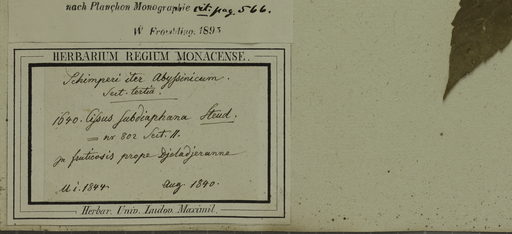 nach Planchon Monographie cit. pag. 566.
W. Froehling. 1893
HERBARIUM REGIUM MONACENSE.
Schimperi iter Abyssinicum.
Sect. tertia.
1640. Cissus subdiaphana Steud.
= nr. 802 Sect. II.
in fruticosis prope Djeladjeranne
U. i. 1844. Aug. 1840.
Herbar. Univ. Ludov. Maximil.